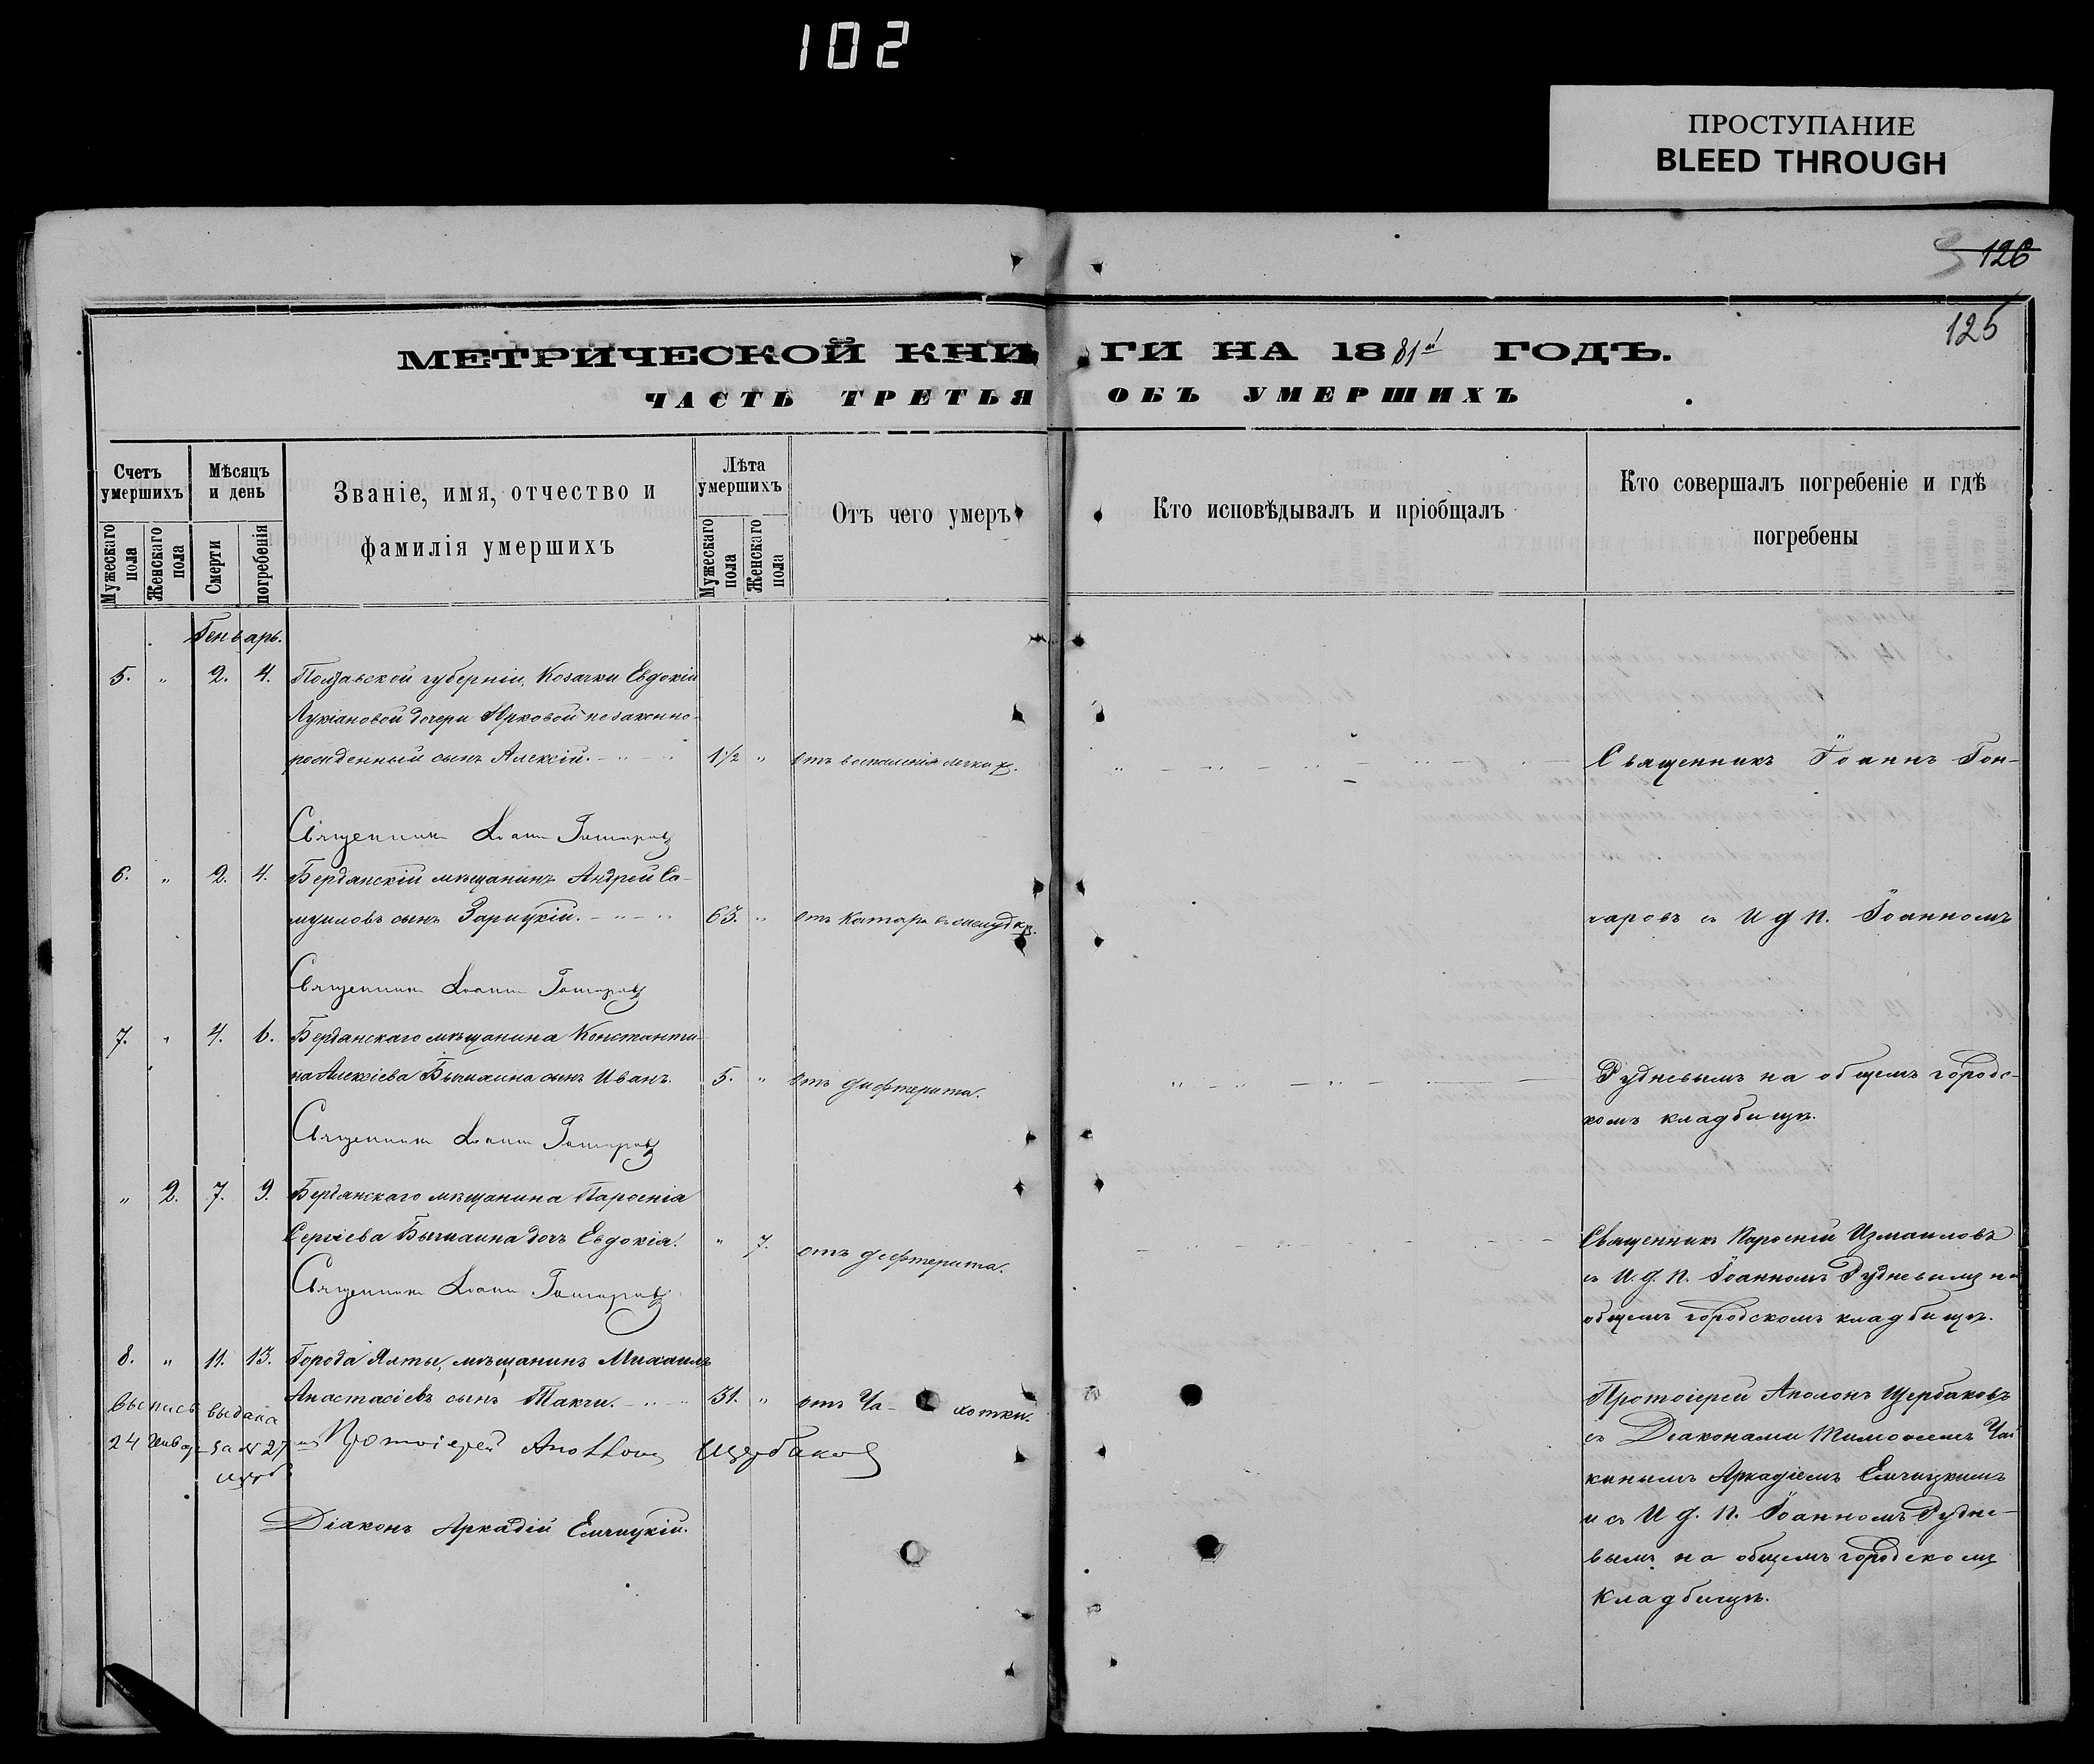 102
ПРОСТУПАНИЕ
BLEED THROUGH
126
125
МЕТРИЧЕСКОЙ КНИГИ НА 1881й ГОДЪ.
ЧАСТЬ ТРЕТЬЯ ОБЪ УМЕРШИХЪ
Счетъ умершихъ
Мужескаго пола
Женскаго пола
Мѣсяцъ и день
Смерти
погребенія
Званіе, имя, отчество и
фамилія умершихъ
Лѣта умершихъ
Мужескаго пола
Женскаго пола
Отъ чего умеръ
Кто исповѣдывалъ и пріобщалъ
Кто совершалъ погребеніе и гдѣ
погребены
Генварь.
5. " 2. 4. Полтавской губерніи, Козачки Евдокіи
Лукіановой дочери Ярковой незаконно-
рожденный сынъ Алексій. 1½ " отъ воспаленія легких. Священникъ Іоаннъ Гон-
Священник Іоанн Гончаровъ
6. " 2. 4. Бердянскій мѣщанинъ Андрей Са-
муиловъ сынъ Зарицкій. 63. " отъ катара въ желудкѣ. чаровъ съ И д п. Іоанномъ
Священник Іоанн Гончаровъ
7. " 4. 6. Бердянскаго мѣщанина Константи-
на Алексіева Бычихина сынъ Иванъ. 5. " отъ дифтерита. Рудневымъ на общемъ городс-
комъ кладбищѣ.
Священник Іоанн Гончаровъ
" 2. 7. 9. Бердянскаго мѣщанина Парѳенія
Сергіева Бычихина дочь Евдокія. " 7. отъ дифтерита. Священникъ Парѳеній Измаиловъ
съ И. д. п. Іоанномъ Рудневымъ на
общемъ городскомъ кладбищѣ.
Священник Іоанн Гончаровъ
8. " 11. 13. Города Ялты, мѣщанинъ Михаилъ
Анастасіевъ сынъ Такчи. 31. " отъ Чахотки. Протоіерей Аполонъ Щербаковъ
Выпись выдана
24 Январ за № 27
Протоіерей Аполлонъ Щербаковъ
съ Діаконами Тимоѳеемъ Чай
кинымъ Аркадіемъ Емчицкимъ
и съ И д. п. Іоанномъ Рудне-
вымъ на общемъ городскомъ
кладбищѣ.
Діаконъ Аркадій Емчицкій.